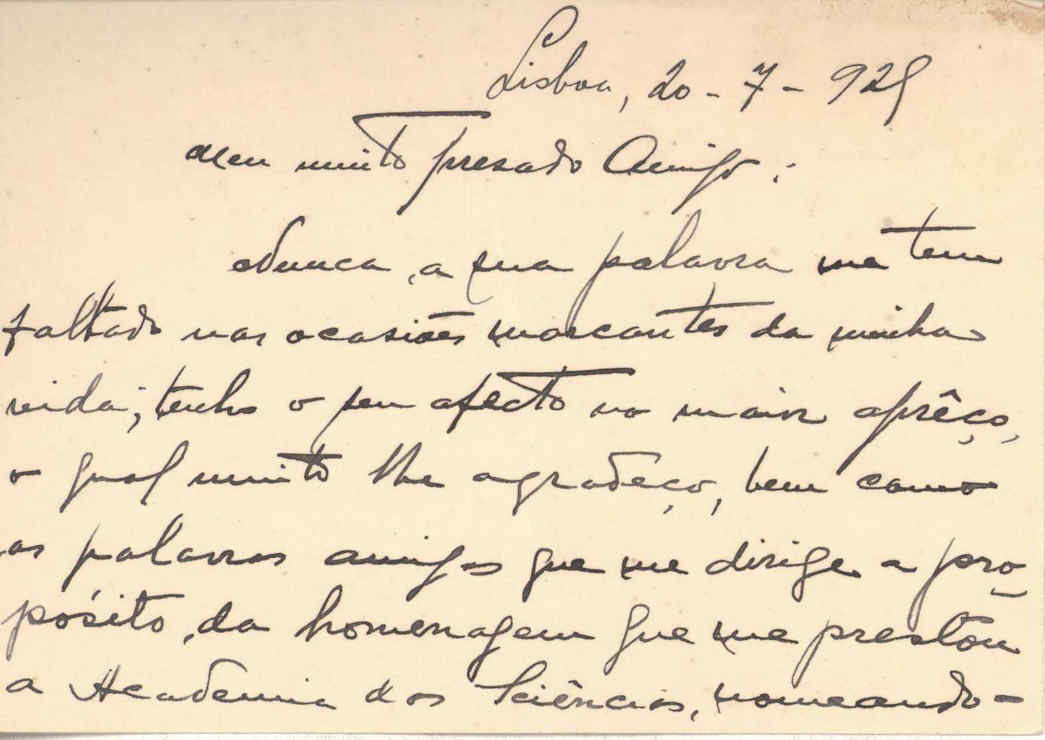 Lisboa, 20-7-925
Meu muito presado Amigo:
Nunca a sua palavra me tem
faltado nas ocasiões marcantes da minha
vida; tenho o seu afecto no maior aprêço,
o qual muito lhe agradeço, bem como
as palavras amigas que me dirige a pro-
pósito da homenagem que me prestou
a Academia das Sciências, nomeando-